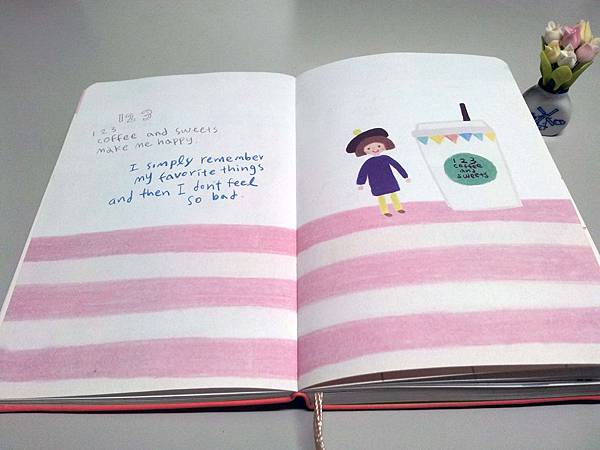 123
123
coffee and sweets
make me happy.
I simply remember
my favorite things
and then I dont feel
so bad.
123
coffee
and
sweets